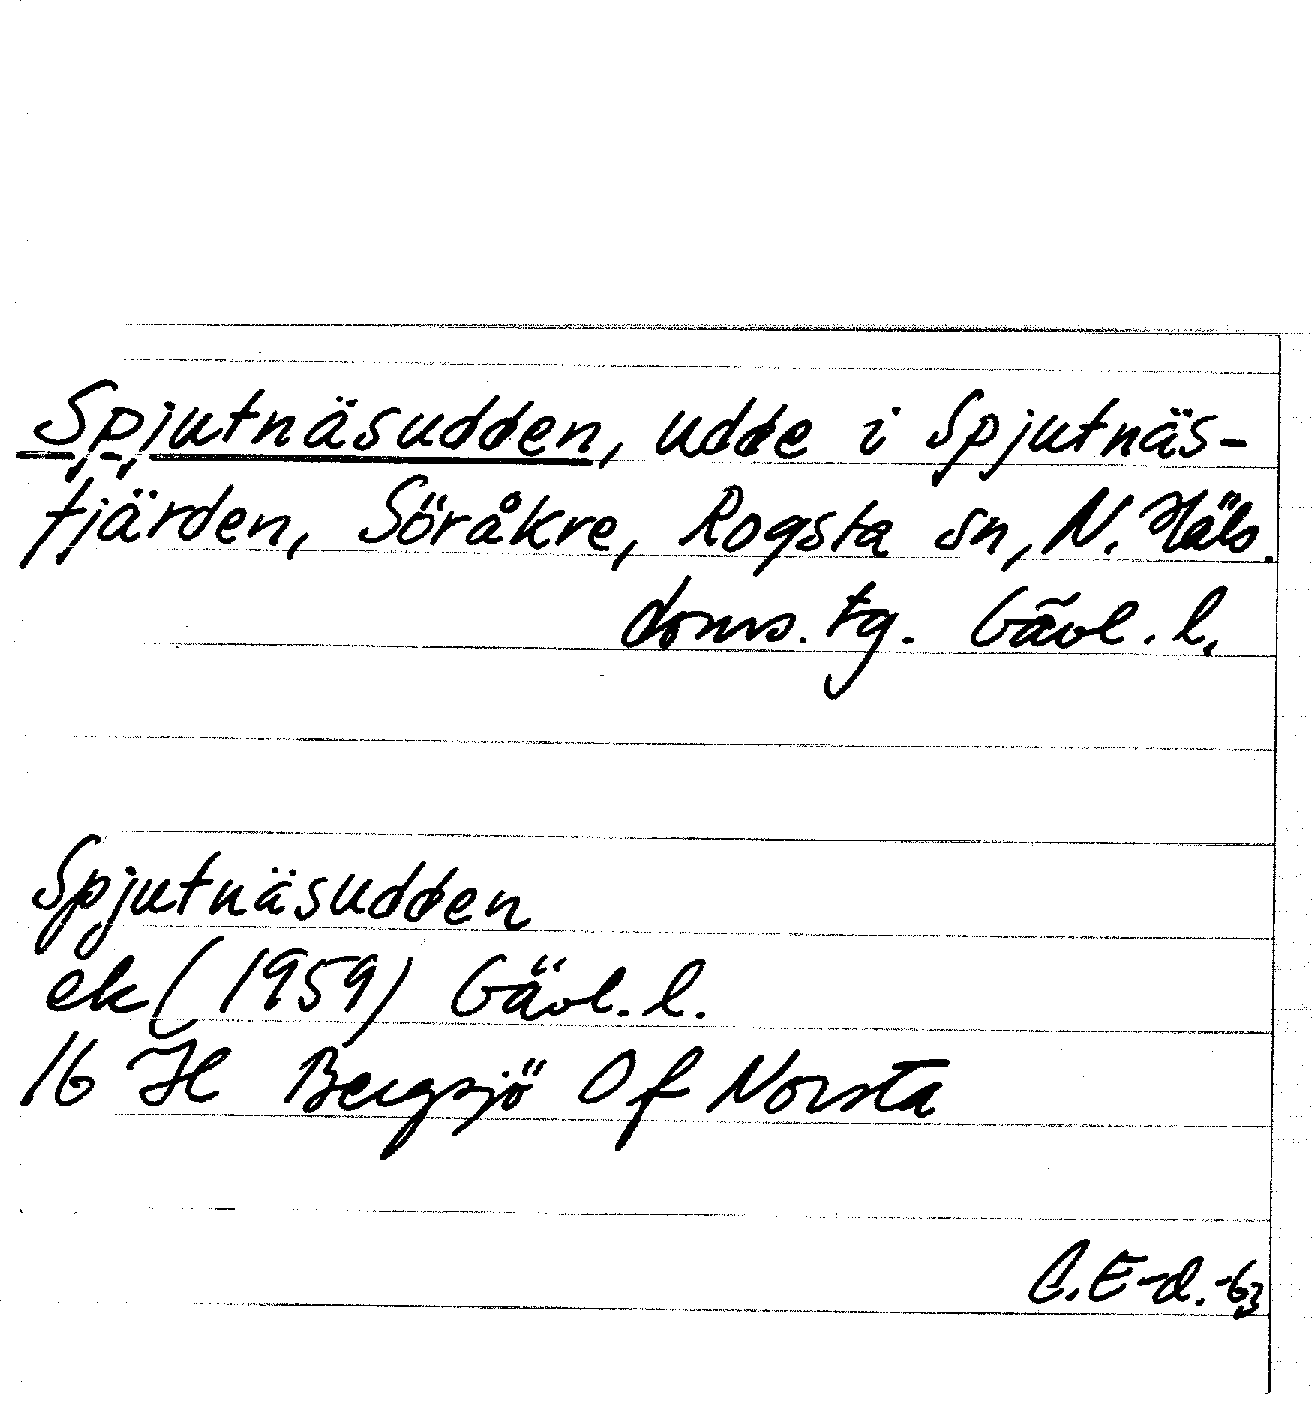 Spjutnäsudden, udde i Spjutnäs-
fjärden, Söråkre, Rogsta sn, N. Häls.
doms. tg. Gävl. l.
Spjutnäsudden
ek (1959) Gävl. l.
16 H Bergsjö Of Norsta
C. E-d. -63